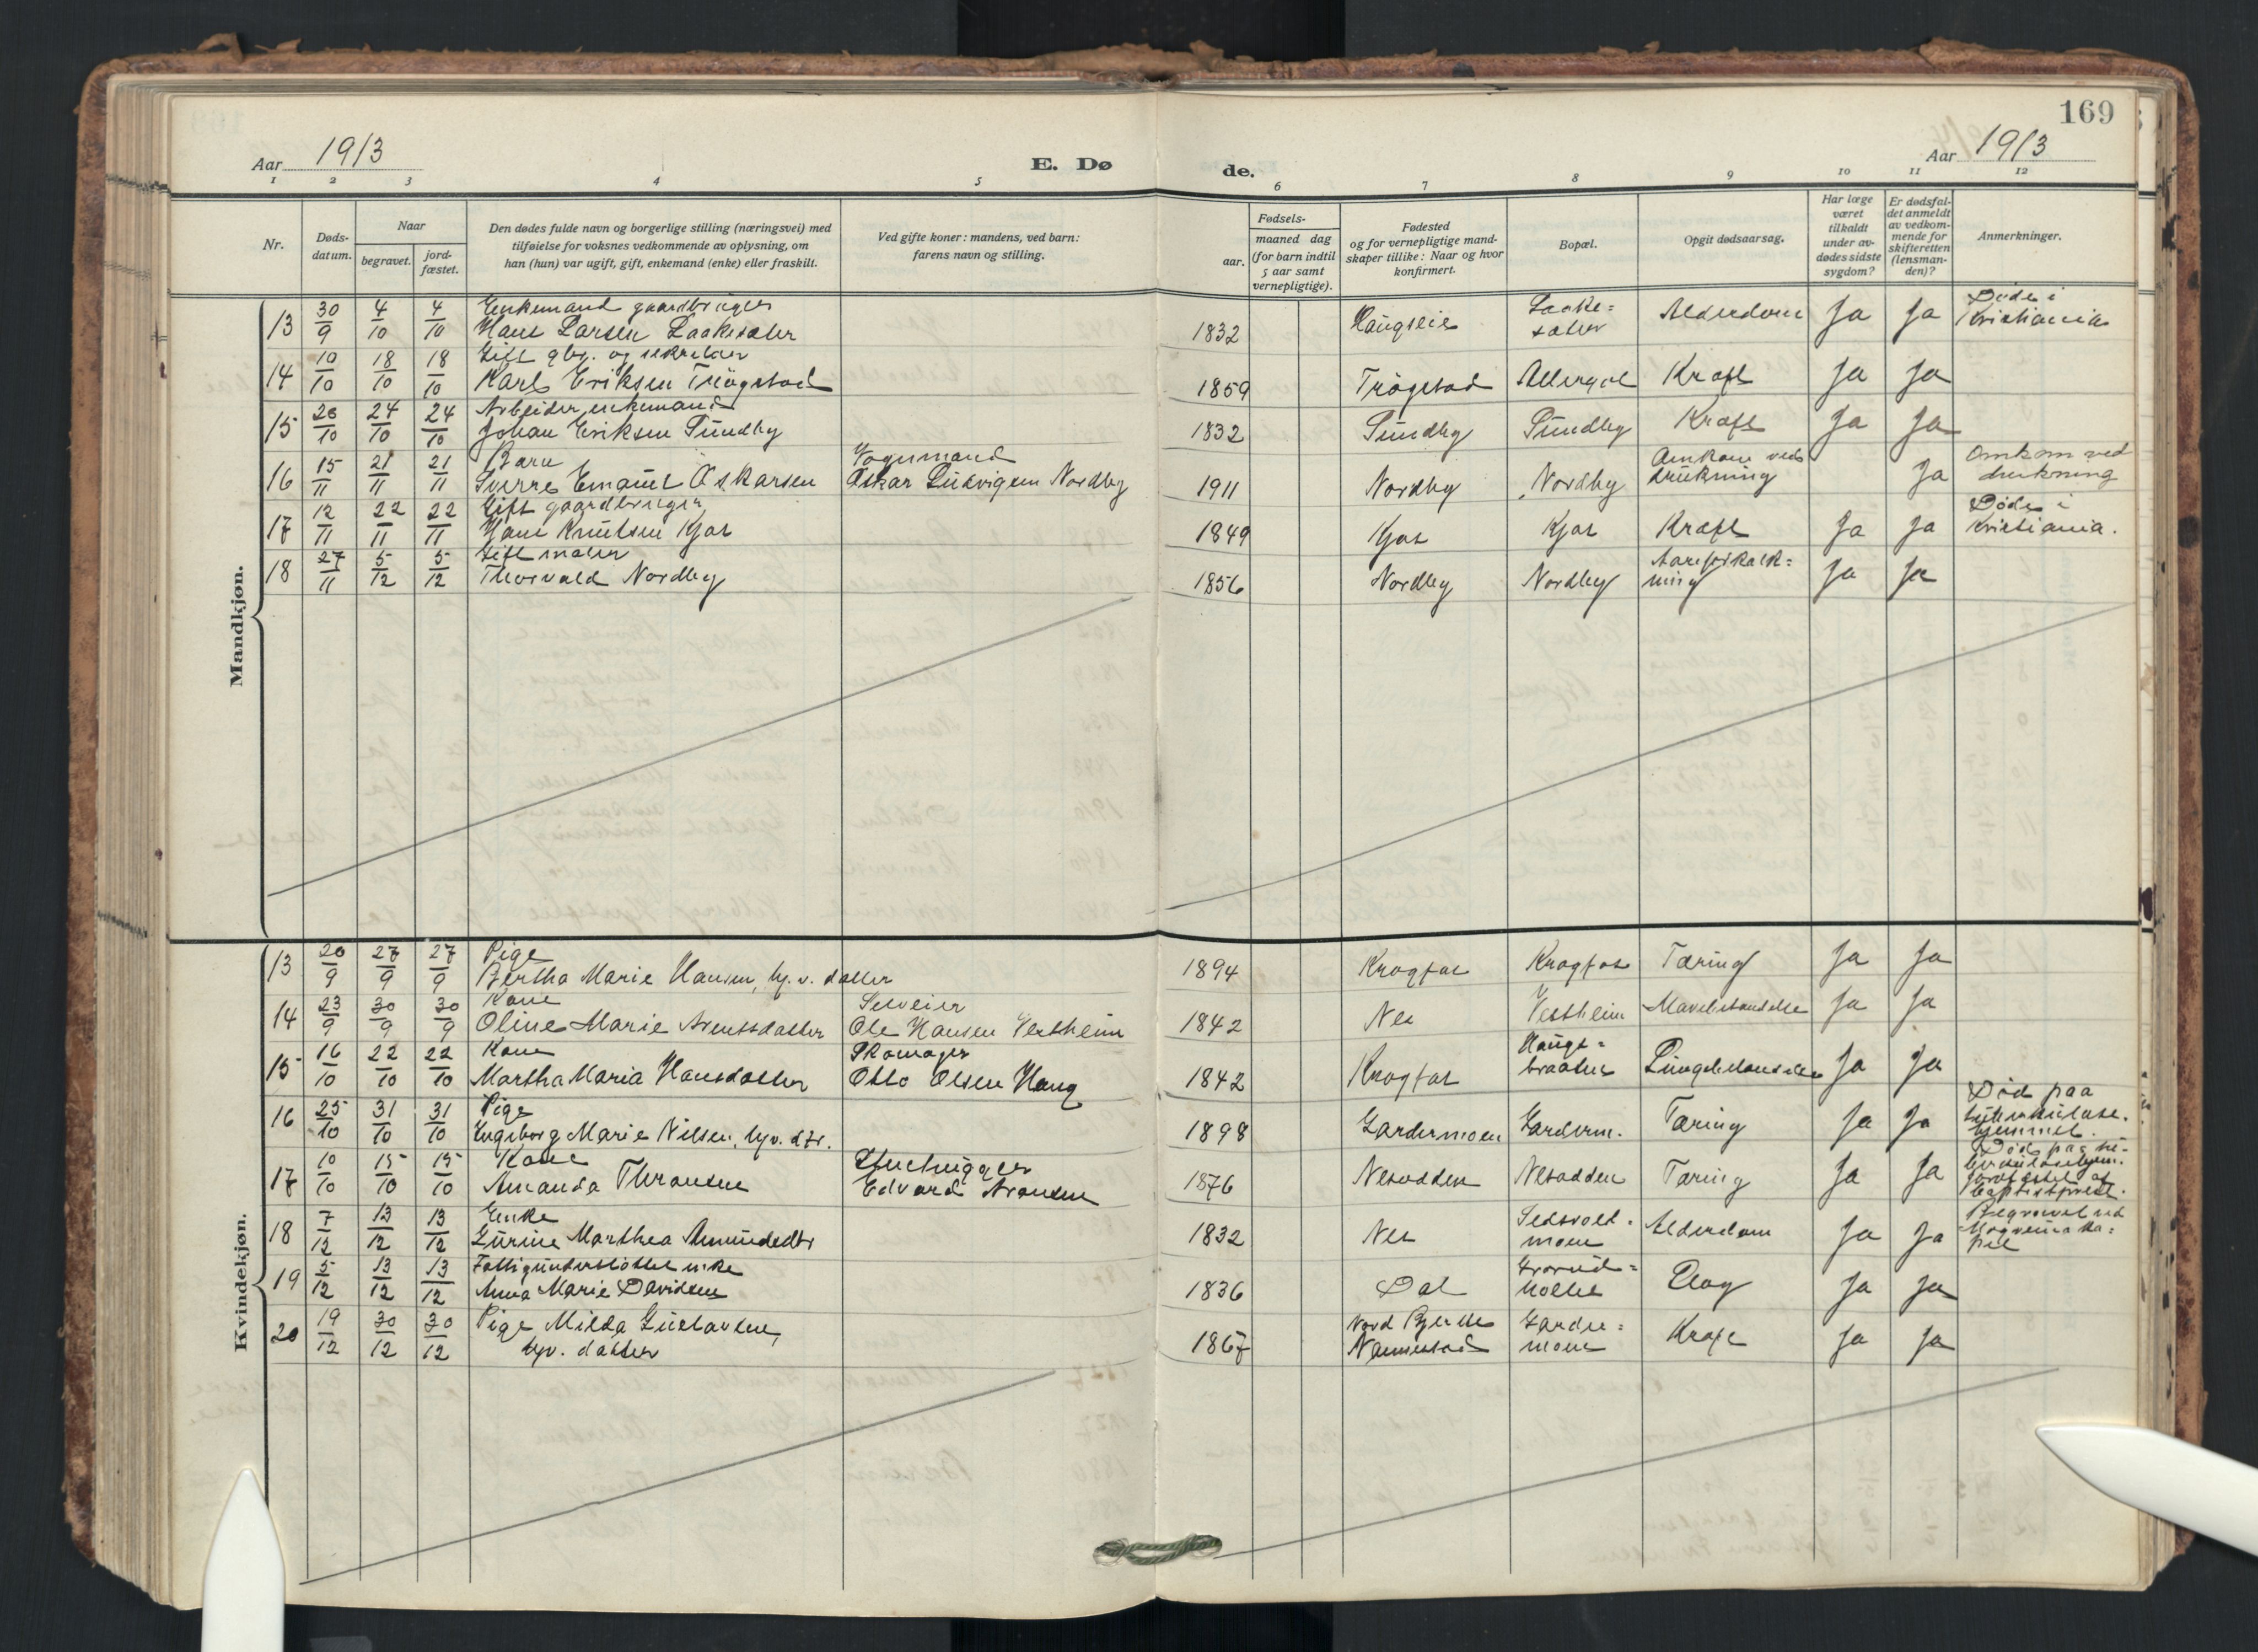 169
Aar 1913
E. Dø de.
Aar 1913
1 2 3 4 5 6 7 8 9 10 11 12
Nr.
Døds-
datum.
Naar
begravet.
jord-
fæstet.
Den dødes fulde navn og borgerlige stilling (næringsvei) med
tilføielse for voksnes vedkommende av oplysning, om
han (hun) var ugift, gift, enkemand (enke) eller fraskilt.
Ved gifte koner: mandens, ved barn:
farens navn og stilling.
Fødsels-
aar.
maaned dag
(for barn indtil
5 aar samt
vernepligtige).
Fødested
og for vernepligtige mand-
skaper tillike: Naar og hvor
konfirmert.
Bopæl.
Opgit dødsaarsag.
Har læge
været
tilkaldt
under av-
dødes sidste
sygdom?
Er dødsfal-
det anmeldt
av vedkom-
mende for
skifteretten
(lensman-
den)?
Anmerkninger.
Mandkjøn.
13 30/9 4/10 4/10 Enkemand gaardbruger
Hans Larsen Laakesæter 1832 Haugseie Laake=
sæter Alderdom Ja Ja Døde i
Kristiania
14 10/10 18/10 18/10 Gift gbr. og
Karl Eriksen Trøgstad 1859 Trøgstad Allergot Kræft Ja Ja
15 20/10 24/10 24/10 Arbeider, enkemand
Johan Eriksen Sundby 1832 Sundby Sundby Kræft Ja Ja
16 15/11 21/11 21/11 Barn Vognmand
Sverre Emanuel Oskarsen Oskar Ludvigsen Nordby 1911 Nordby Nordby Omkom ved
drukning Ja Omkom ved
drukning
17 12/11 22/11 22/11 Gift gaardbruger
Hans Knutsen Kjos 1849 Kjos Kjos Kræft Ja Ja Døde i
Kristiania.
18 27/11 5/12 5/12 Gift maler
Thorvald Nordby 1856 Nordby Nordby Aareforkalk=
ning Ja Ja
Kvindekjøn.
13 20/9 27/9 27/9 Pige
Bertha Marie Hansen, hj. v. datter 1894 Krogfos Krogfos Tæring Ja Ja
14 23/9 30/9 30/9 Kone Selveier
Oline Marie Arentsdatter Ole Hansen Vestheim 1842 Nes Vestheim Mavebetændelse Ja Ja
15 16/10 22/10 22/10 Kone Skomager
Martha Maria Hansdatter Otto Olsen Haug 1842 Krogfos Haugs=
braaten Lungebetændelse Ja Ja
16 25/10 31/10 31/10 Pige
Engeborg Marie Nilsen, hjv. dtr. 1898 Gardermoen Garderm. Tæring Ja Ja Død paa
tuberkulose.
hjemmet.
17 10/10 15/10 15/10 Kone Stenhugger
Amanda Thronsen Edvard Aronsen 1876 Nesodden Nesodden Tæring Ja Ja Død paa tu-
berkulosehjem.
Jordfæstet af
baptistprest.
18 7/12 13/12 13/12 Enke
Gurine Marthea Amundsdtr 1832 Nes Sessvold-
moen Alderdom Ja Ja Begravet ved
Mogreina ka=
pel
19 5/12 13/12 13/12 Fattigunderstøttet enke
Anna Marie Davidsen 1836 Dal Ja Ja
20 19/12 30/12 30/12 Pige Milda Gustavsen,
hjv. datter 1867 Nord
Nannestad Garder=
moen Kræft Ja Ja